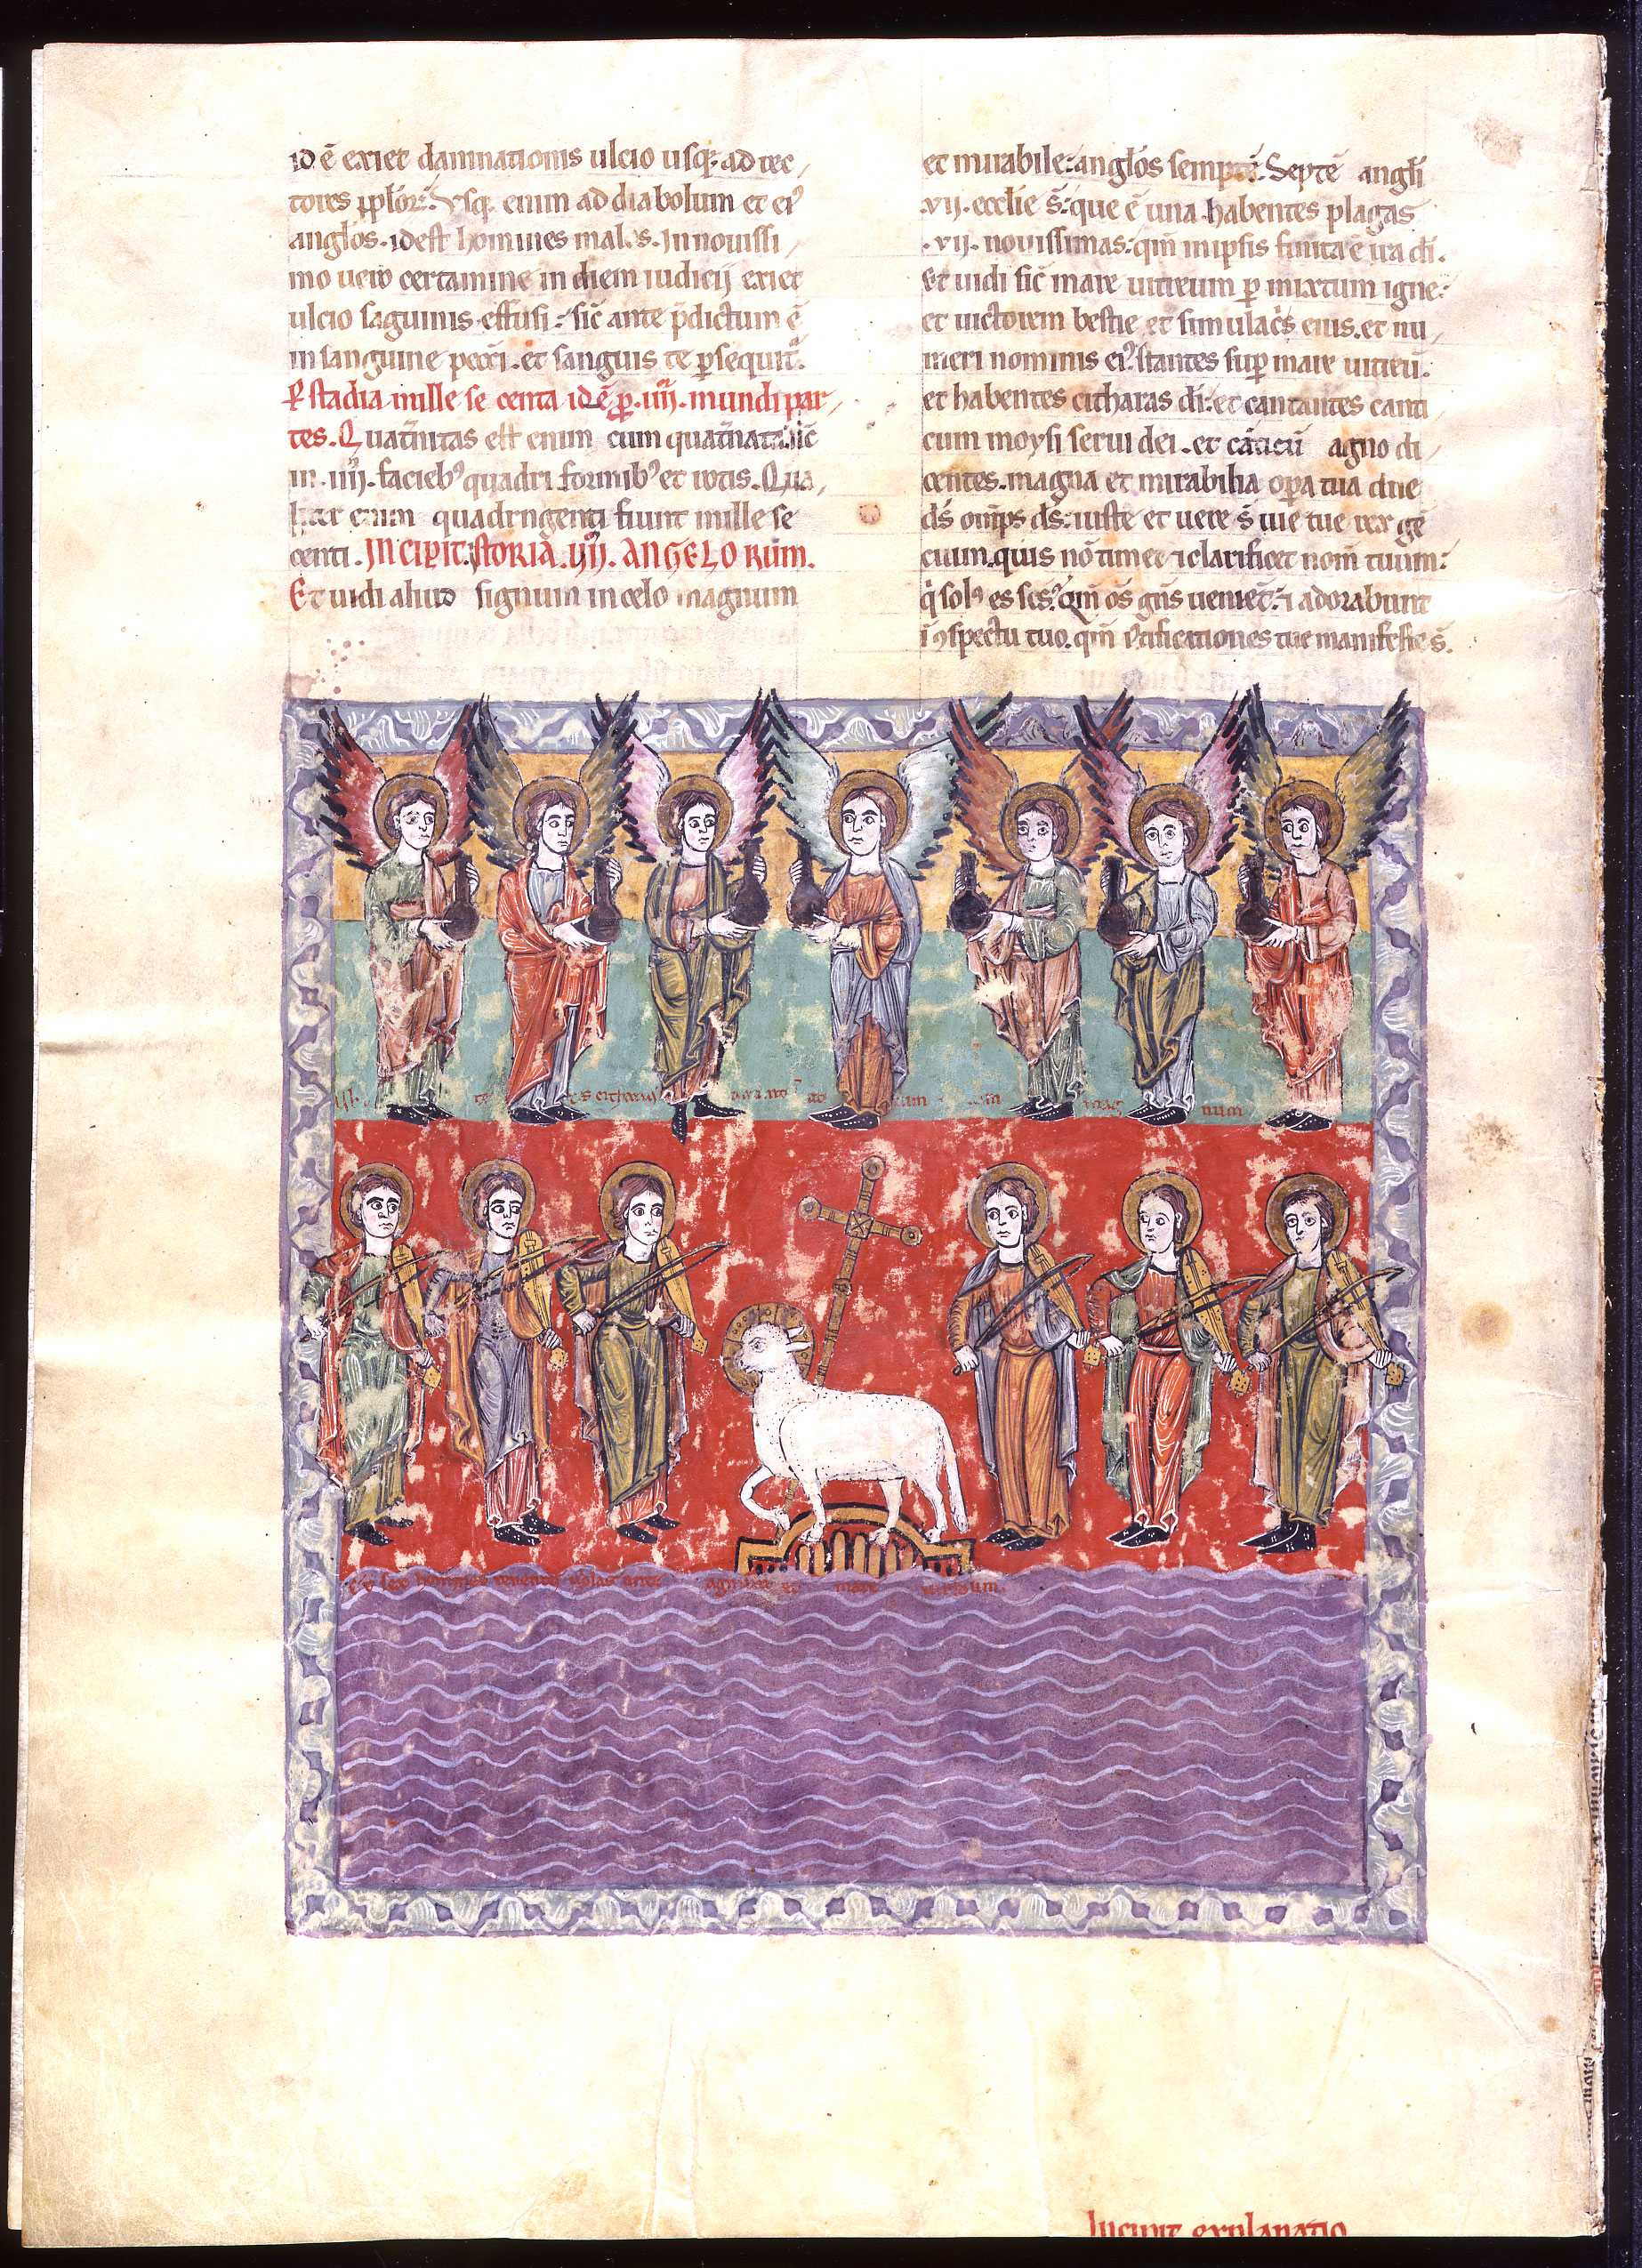 id ē exiet damnationis ulcio usq; ad rec,
tores pplōꝝ. Usq; enim ad diabolum et ei᾿
anglos. id est homines malos. In nouissi,
mo uero certamine in diem iudicij exiet
ulcio saguinis effusi: sic̄ ante p̄dictum ē
in sanguine pecc̄i. et sanguis te ꝑsequit᾿.
ꝑ stadia mille se centa id ē ꝑ .IIII. mundi par,
tes. Quat̄nitas est enim cum quat̄nata sic̄
in .IIII. facieb᾿ quadri formib᾿ et rotis. Qua,
enim quadringenti fiunt mille se
centi. INCIPIT STORIA .VII. ANGELORUM.
Et uidi aliud signum in celo magnum
et mirabile: anglos septē. Septē angli
.VII. ecclie s̄: que ē una. habentes plagas
.VII. nouissimas: qm̄ in ipsis finita ē ira di.
Et uidi sic̄ mare uitreum ꝑ mixtum igne:
et uictorem bestie et simulacs eius. et nu,
meri nominis ei᾿. stantes suꝑ mare uitreū.
et habentes citharas di: et cantantes canti
cum moysi serui dei. et cāticū agno di,
centes. magna et mirabilia oꝑa tua dn̄e
ds̄ omps ds̄: iuste et uere s̄ uie tue rex gē
cium. quis nō timet ⁊ clarificet nom̄ tuum:
q̓ sol᾿ es scs᾿. qm̄ os̄ gn̄s uenient: ⁊ adorabunt
ī ꝯspectu tuo. qm̄ iustificationes tue manifeste s̄.
citharis
mag num
sex homines tenentes uiolas ante agnum et mare uitreum.
Incipit explanatio